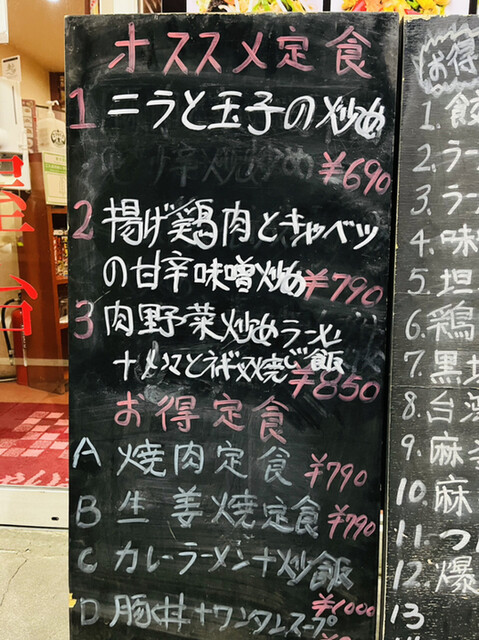 オススメ定食
1 ニラと玉子の炒め
¥690
2 揚げ鶏肉とキャベツ
の甘辛味噌炒め ¥790
3 肉野菜炒めラーメン
+メンマとネギ
ご飯
¥850
お得定食
A 焼肉定食 ¥790
B 生姜焼定食 ¥790
C カレーラーメン+炒飯
¥1000
D 豚丼+ワンタンスープ
お得
1. 飠
2. ラー
3. ラー
4. 味
5. 坦
6. 鶏
7. 黒
8. 台湾
9. 麻
10. 麻
11. つ
12. 爆
13